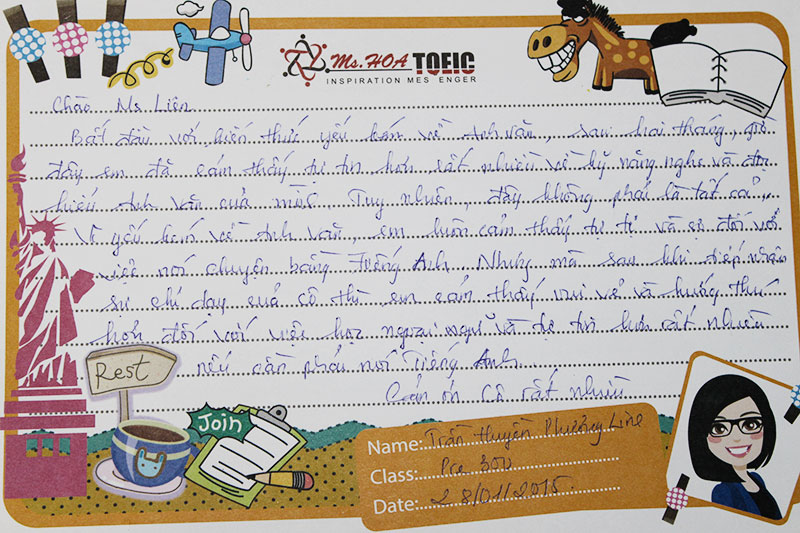 Ms.HOA TOEIC
INSPIRATION MES ENGER
Chào Ms Liên
Bắt đầu với kiến thức yếu kém về Anh văn, sau hai tháng, giờ
đây em đã cảm thấy tự tin hơn rất nhiều về kỹ năng nghe và đọc
hiểu Anh văn của mình. Tuy nhiên, đây không phải là tất cả,
Vì yếu kém về Anh văn, em luôn cảm thấy tự ti và sợ đối với
việc nói chuyện bằng Tiếng Anh. Nhưng mà sau khi tiếp nhận
sự chỉ dạy của cô thì em cảm thấy vui vẻ và hứng thú
hơn đối với việc học ngoại ngữ và tự tin hơn rất nhiều
nếu cần phải nói Tiếng Anh
Cảm ơn Cô rất nhiều
Rest
Join
Name: Trần Huyền Phương Line
Class: Pre 300
Date: 28/01/2015.